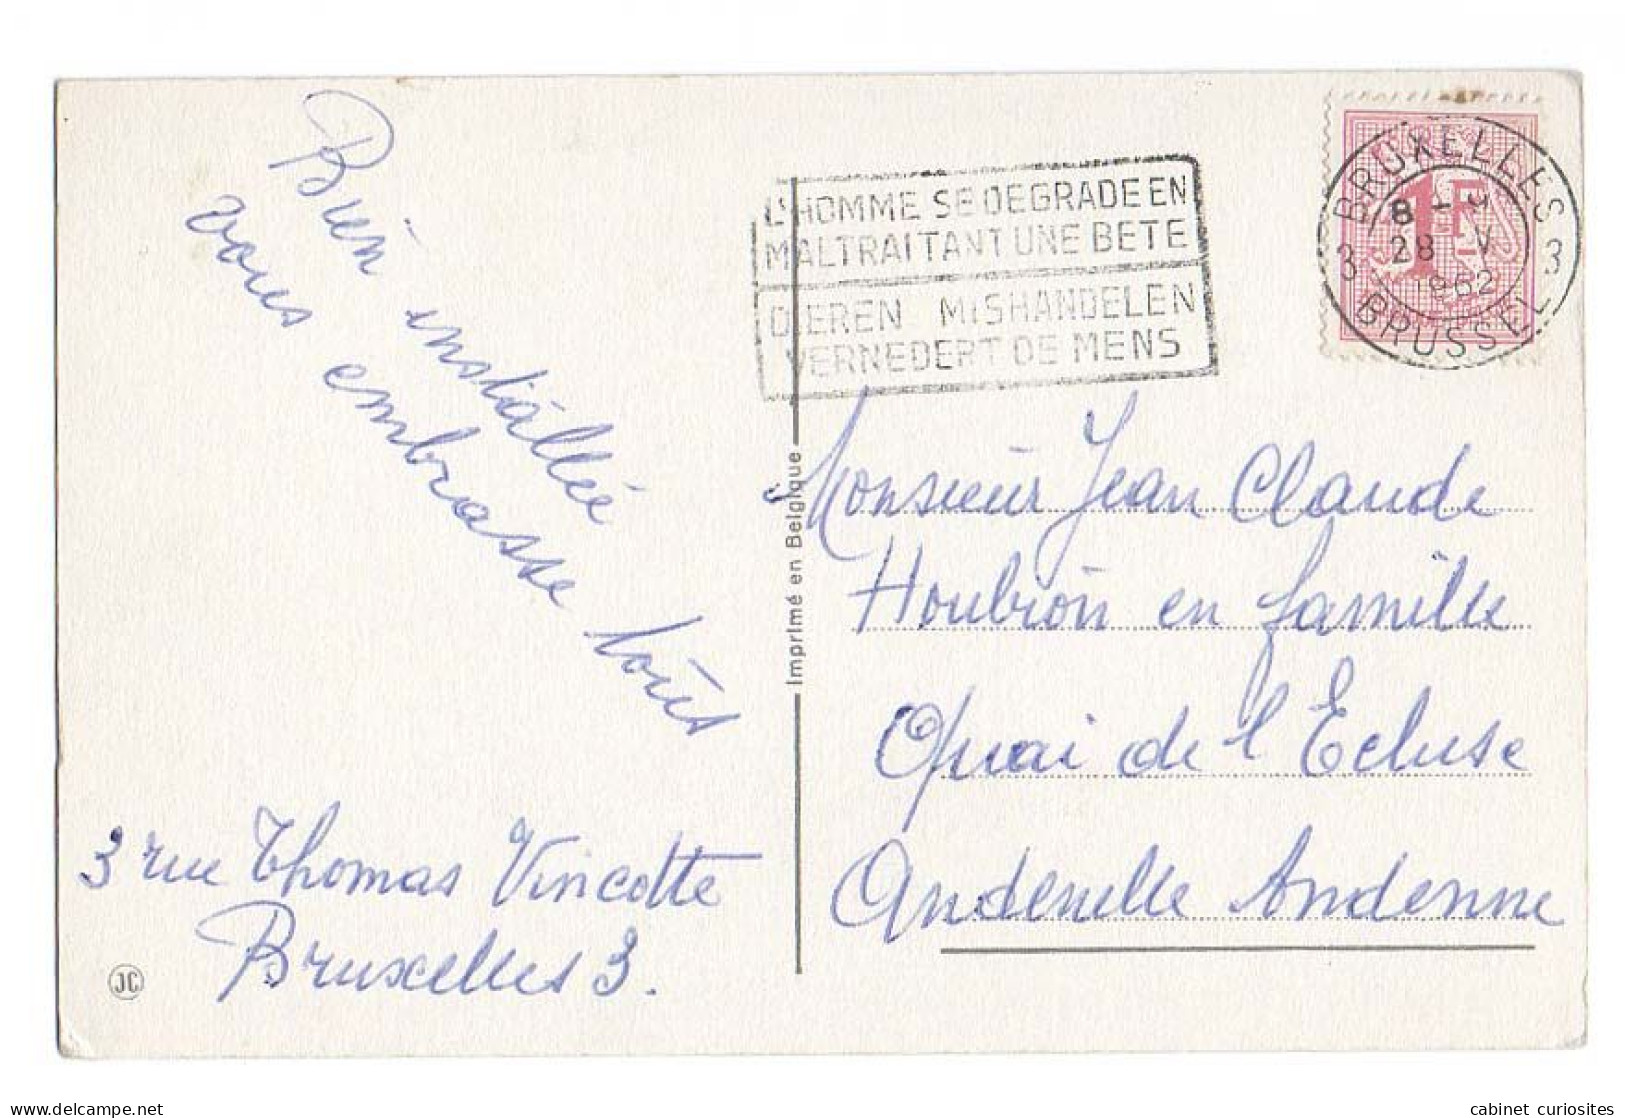 Bien installée
vous embrasse tous
3 rue Thomas Vincotte
Bruxelles 3.
JC
Imprimé en Belgique
L'HOMME SE DEGRADE EN
MALTRAITANT UNE BETE
DIEREN MISHANDELEN
VERNEDERT DE MENS
1F
BRUXELLES
8-9
28 V
1962
3 3
BRUSSEL
Monsieur Jean Claude
Houbion en famille
Quai de l'Ecluse
Andenelle Andenne
cabinet curiosites